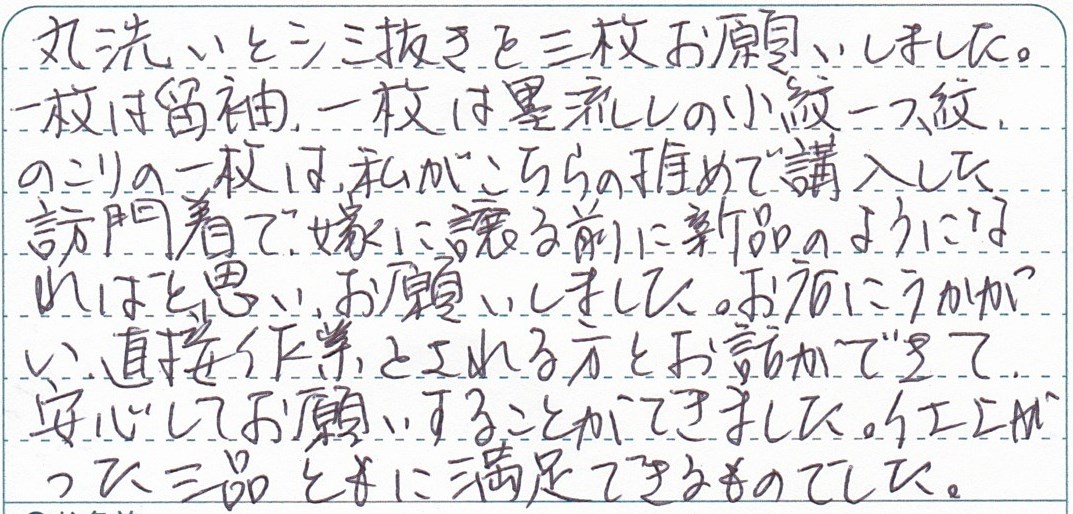 丸洗いとシミ抜きを三枚お願いしました。
一枚は留袖、一枚は墨流しの小紋一つ紋、
のこりの一枚は、私がこちらの推めで講入した
訪問着で、嫁に譲る前に新品のようにな
ればと思い、お願いしました。お店にうかが
い、直接作業をされる方とお話ができて、
安心してお願いすることができました。仕上が
った三品ともに満足できるものでした。